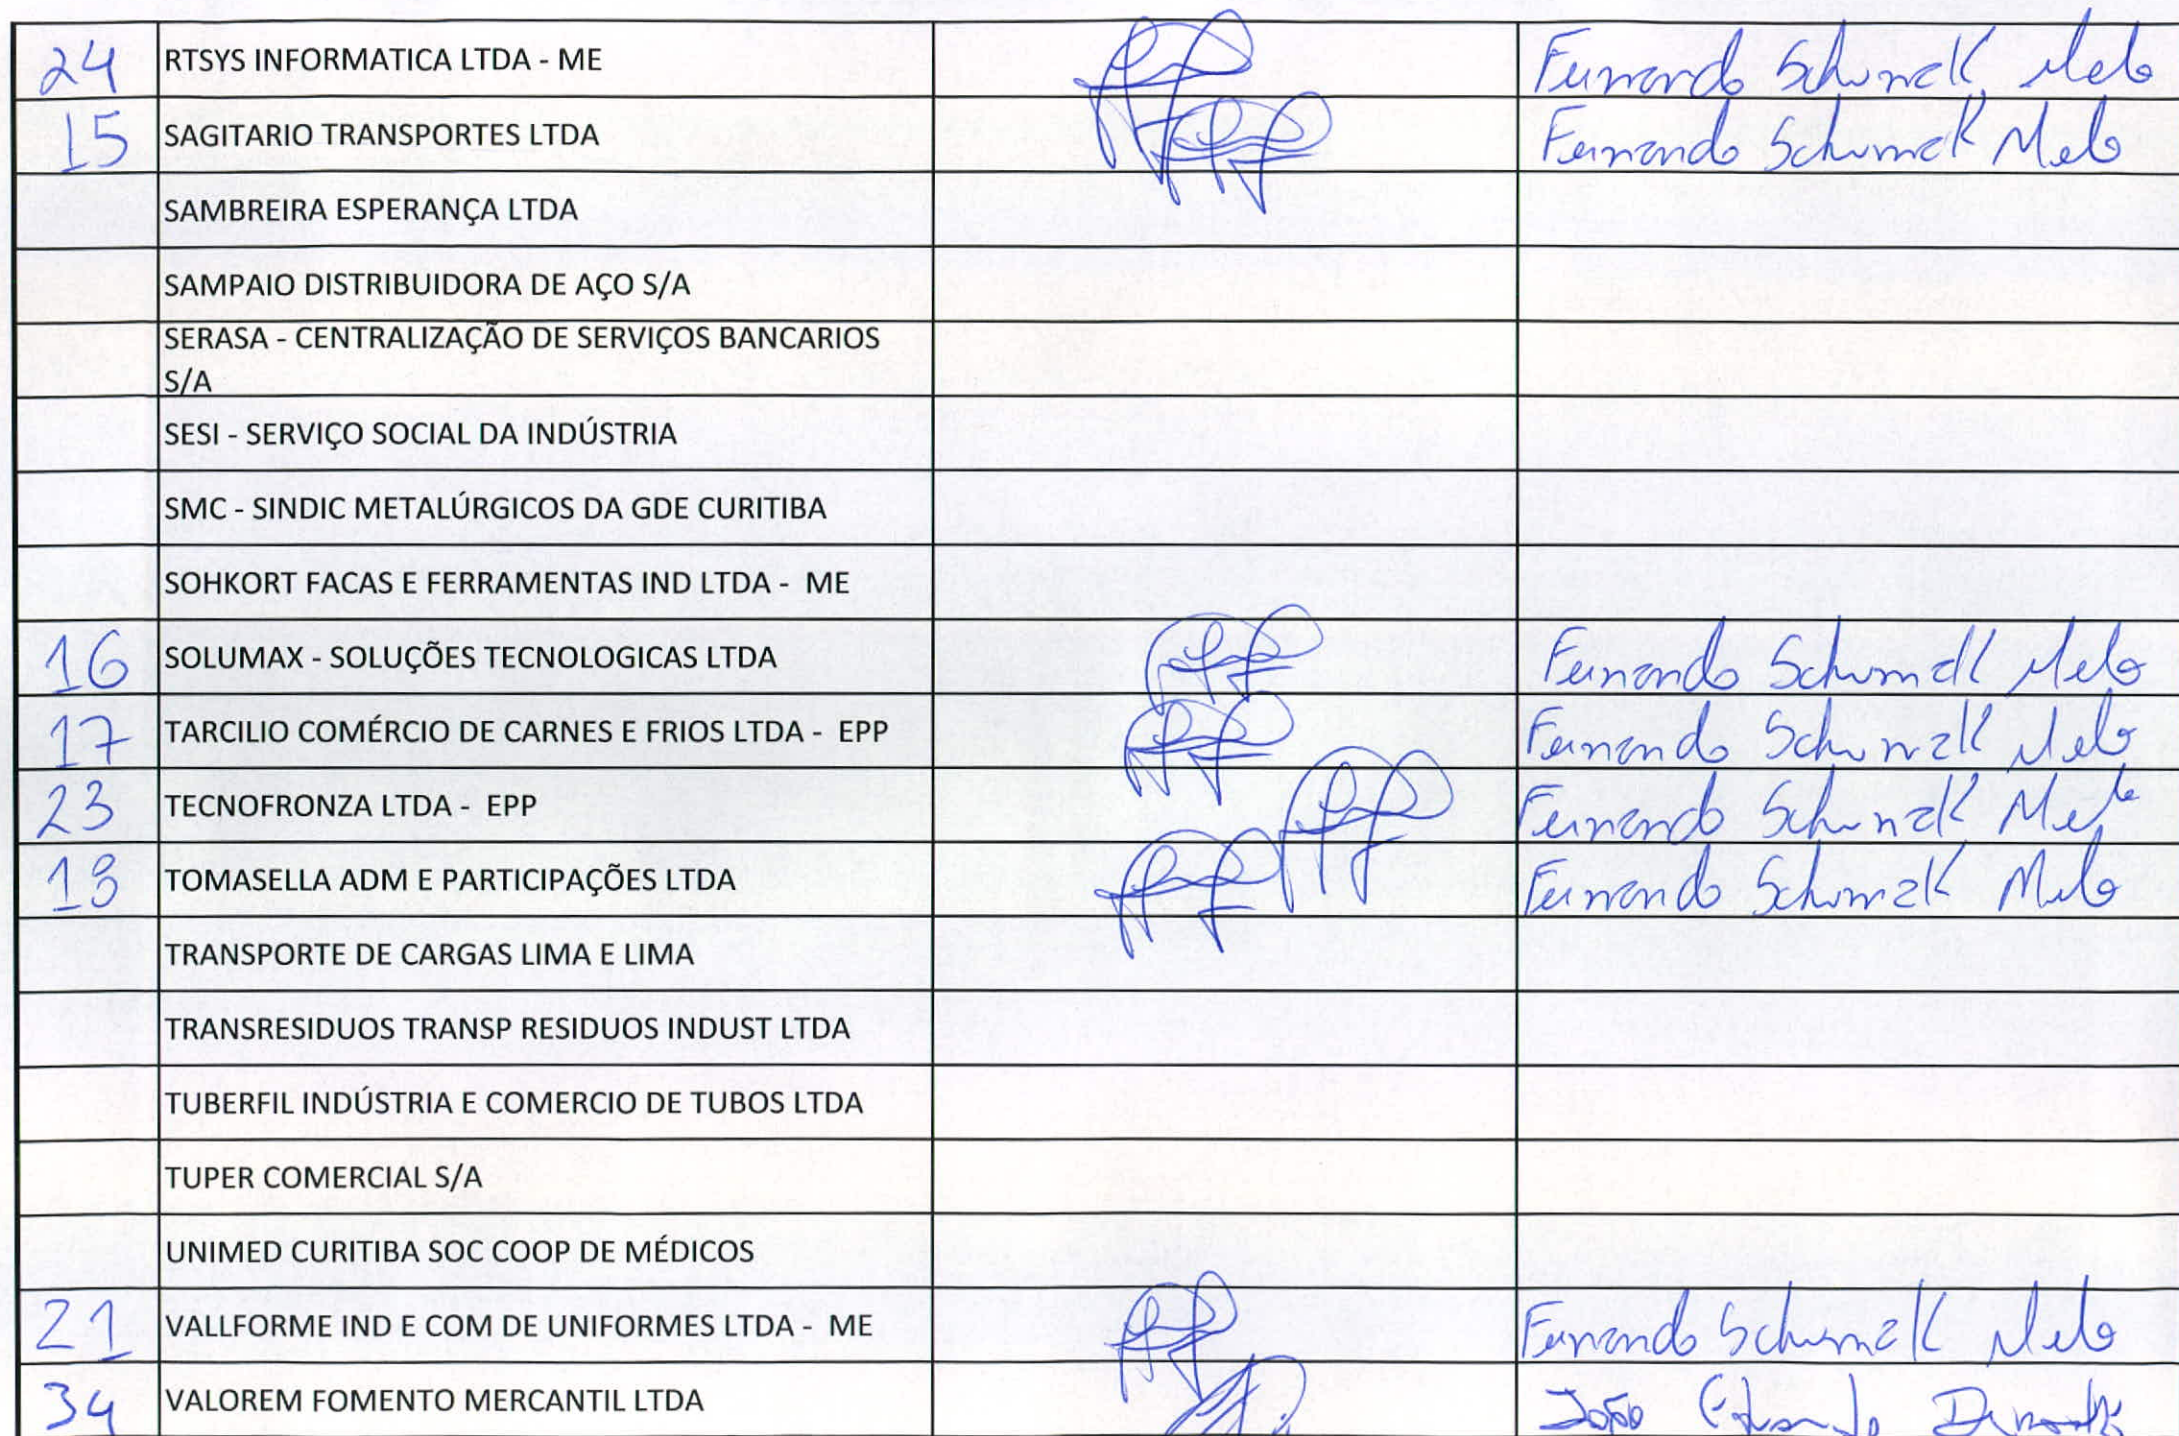 24 RTSYS INFORMATICA LTDA - ME Fernando Schumak Melo
15 SAGITARIO TRANSPORTES LTDA Fernando Schumak Melo
SAMBREIRA ESPERANÇA LTDA
SAMPAIO DISTRIBUIDORA DE AÇO S/A
SERASA - CENTRALIZAÇÃO DE SERVIÇOS BANCARIOS
S/A
SESI - SERVIÇO SOCIAL DA INDÚSTRIA
SMC - SINDIC METALÚRGICOS DA GDE CURITIBA
SOHKORT FACAS E FERRAMENTAS IND LTDA - ME
16 SOLUMAX - SOLUÇÕES TECNOLOGICAS LTDA Fernando Schumak Melo
17 TARCILIO COMÉRCIO DE CARNES E FRIOS LTDA - EPP Fernando Schumak Melo
23 TECNOFRONZA LTDA - EPP Fernando Schumak Melo
18 TOMASELLA ADM E PARTICIPAÇÕES LTDA Fernando Schumak Melo
TRANSPORTE DE CARGAS LIMA E LIMA
TRANSRESIDUOS TRANSP RESIDUOS INDUST LTDA
TUBERFIL INDÚSTRIA E COMERCIO DE TUBOS LTDA
TUPER COMERCIAL S/A
UNIMED CURITIBA SOC COOP DE MÉDICOS
21 VALLFORME IND E COM DE UNIFORMES LTDA - ME Fernando Schumak Melo
34 VALOREM FOMENTO MERCANTIL LTDA João Eduardo